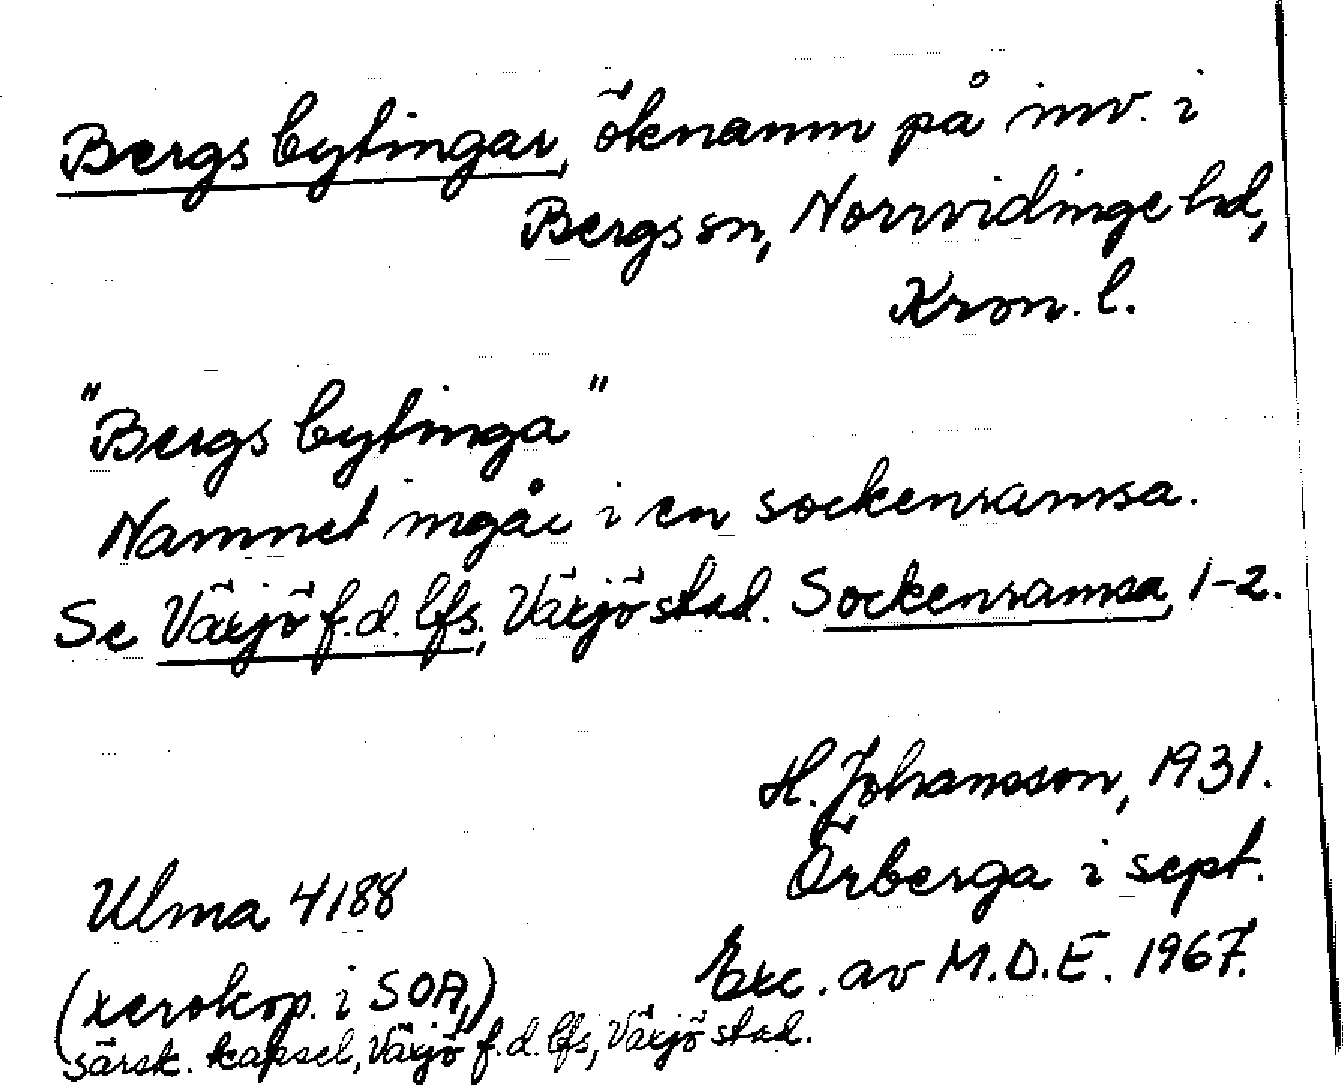 Bergs bytingar, öknamn på inv. i
Bergs sn, Norrvidinge hd,
Kron. l.
"Bergs bytinga"
Namnet ingår i en sockenramsa.
Se Växjö f.d. lfs., Växjö stad. Sockenramsa, 1-2.
H. Johansson, 1931.
Örberga i sept.
Ulma 4188
Exc. av M.D.E. 1967.
(xerokop. i SOA,)
särsk. kapsel, Växjö f.d. lfs, Växjö stad.